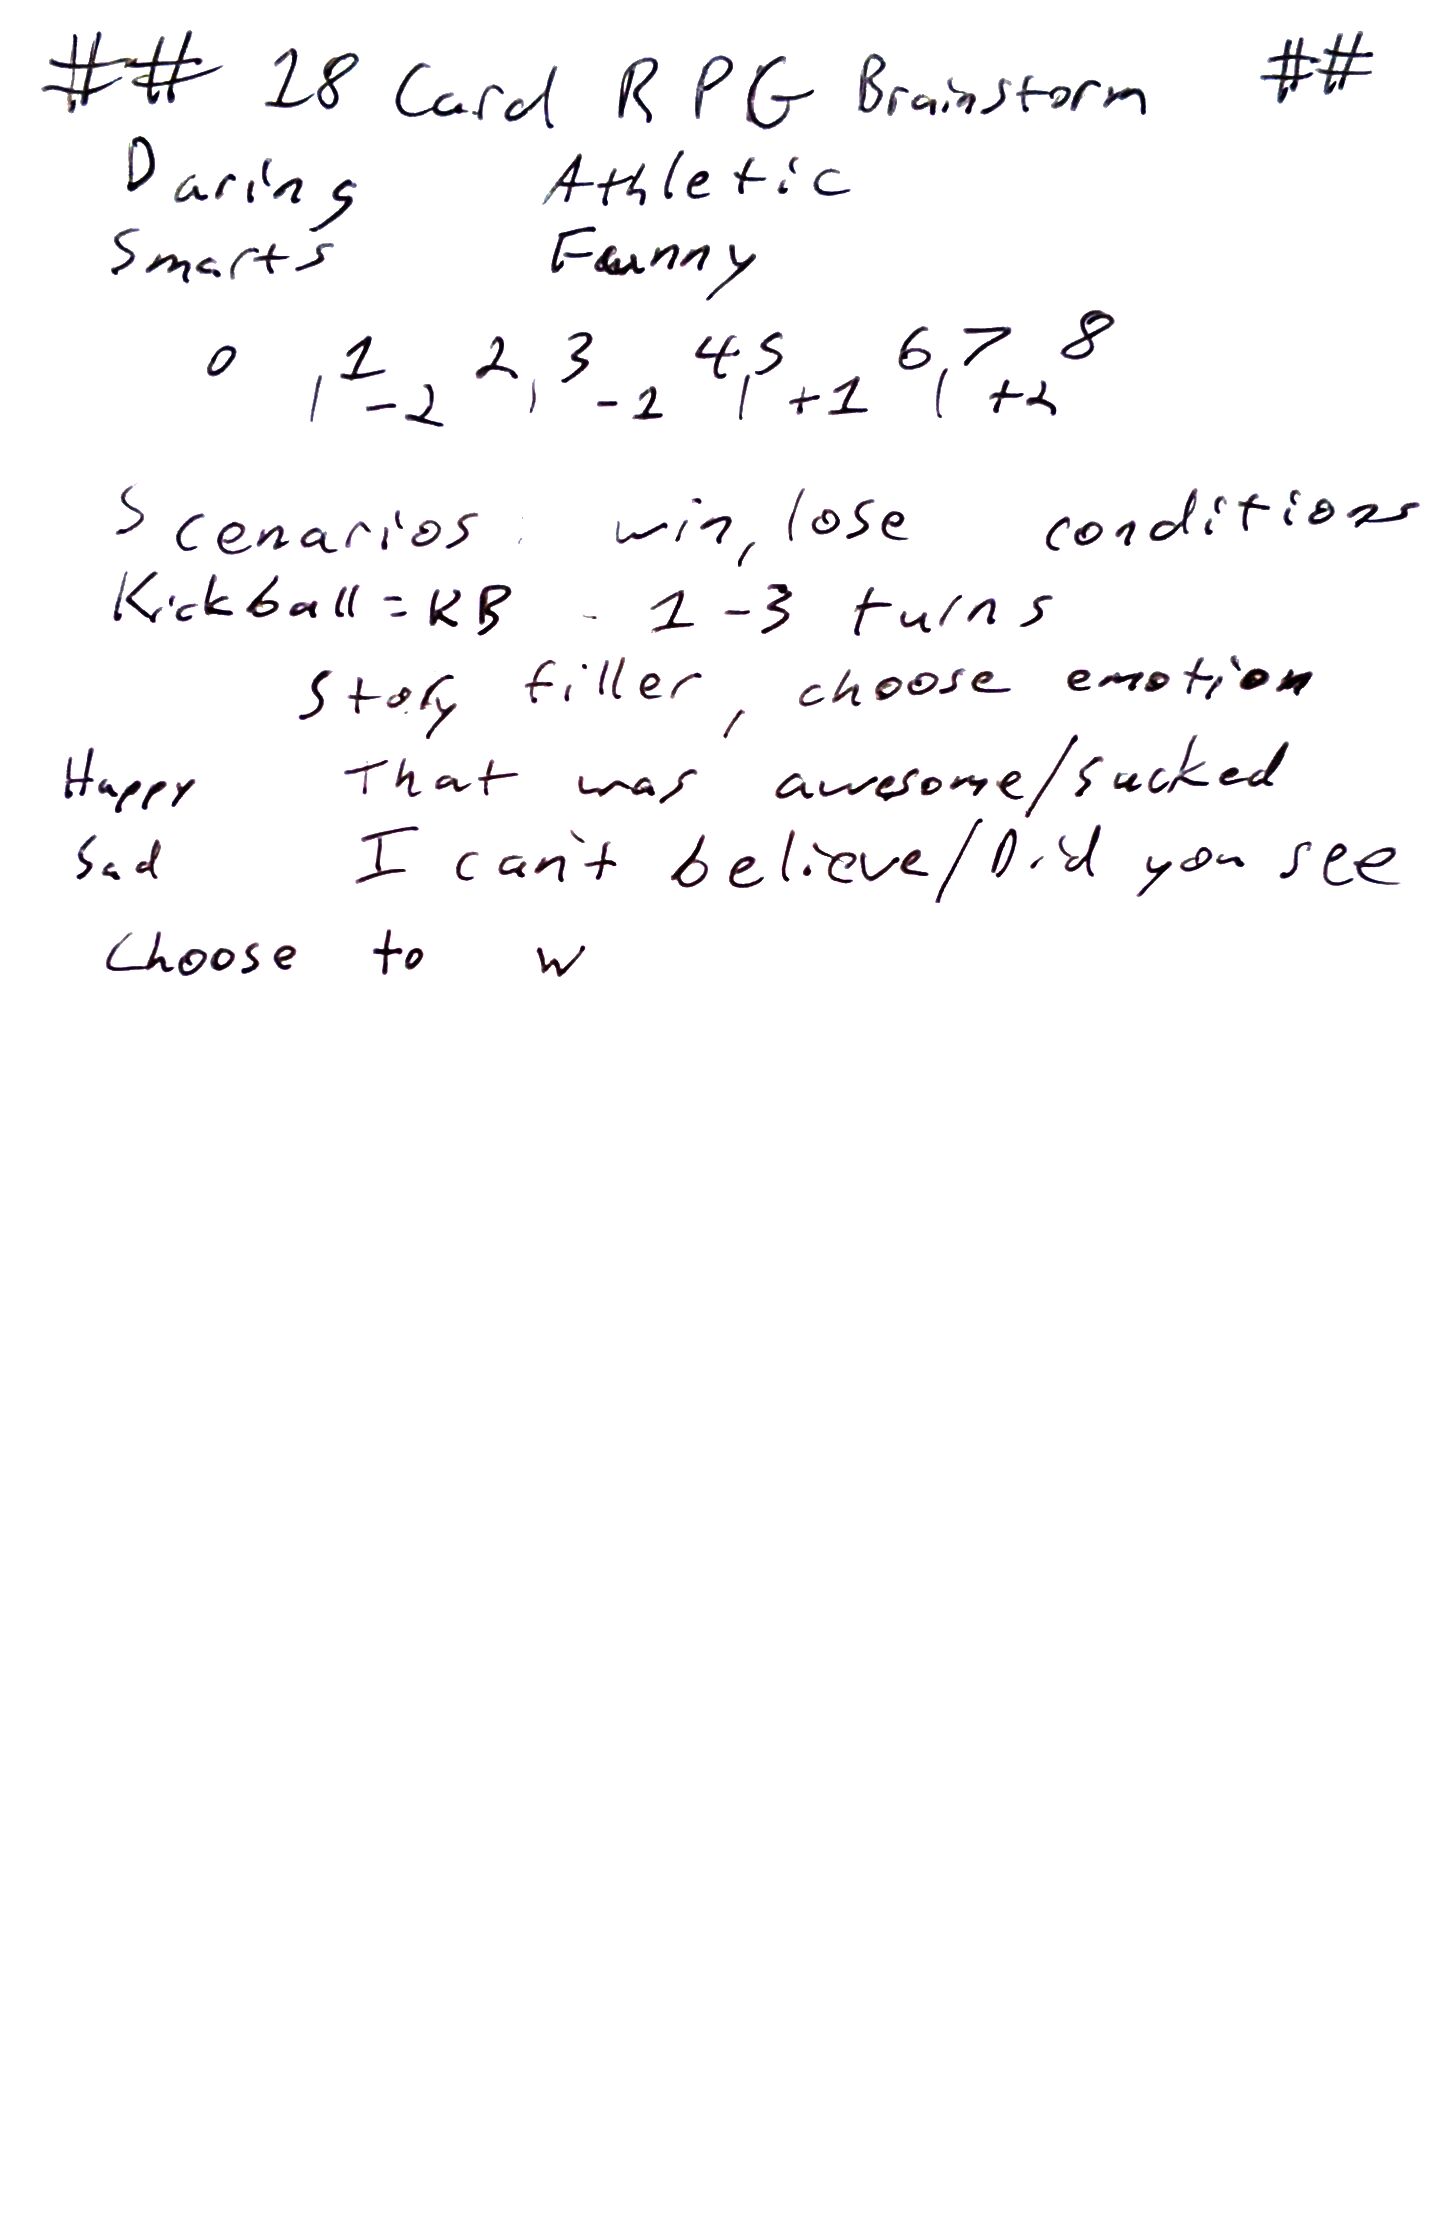 ## 18 Card RPG Brainstorm ##
Daring Athletic
Smarts Funny
0 , 1 2, 3 4, 5 6, 7 8
-2 -1 +1 +2
Scenarios: win, lose conditions
Kickball = KB - 1-3 turns
Story filler, choose emotion
Happy That was awesome/sucked
Sad I can't believe/Did you see
Choose to w